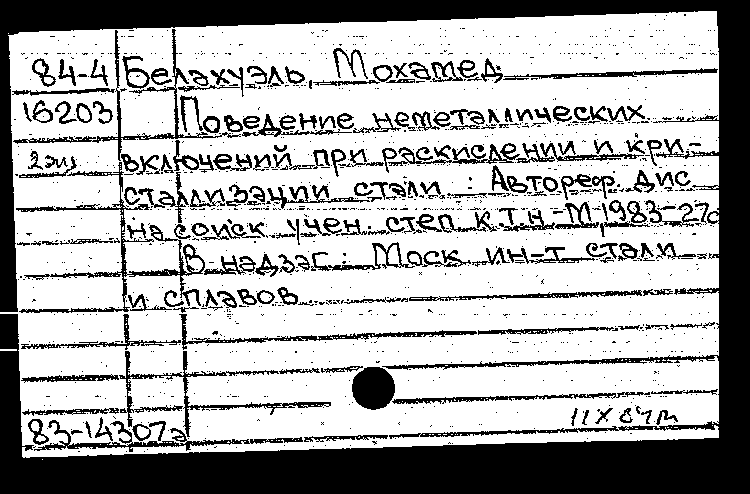 84-4 Белахуэль, Мохамед.
16203 Поведение неметаллических
2 экз включений при раскислении и кри-
сталлизации стали : Автореф. дис
на соиск учен. степ к.т.н.-М, 1983-27с
В надзаг.: Моск ин-т стали
и сплавов
11 X 84
83-14307а